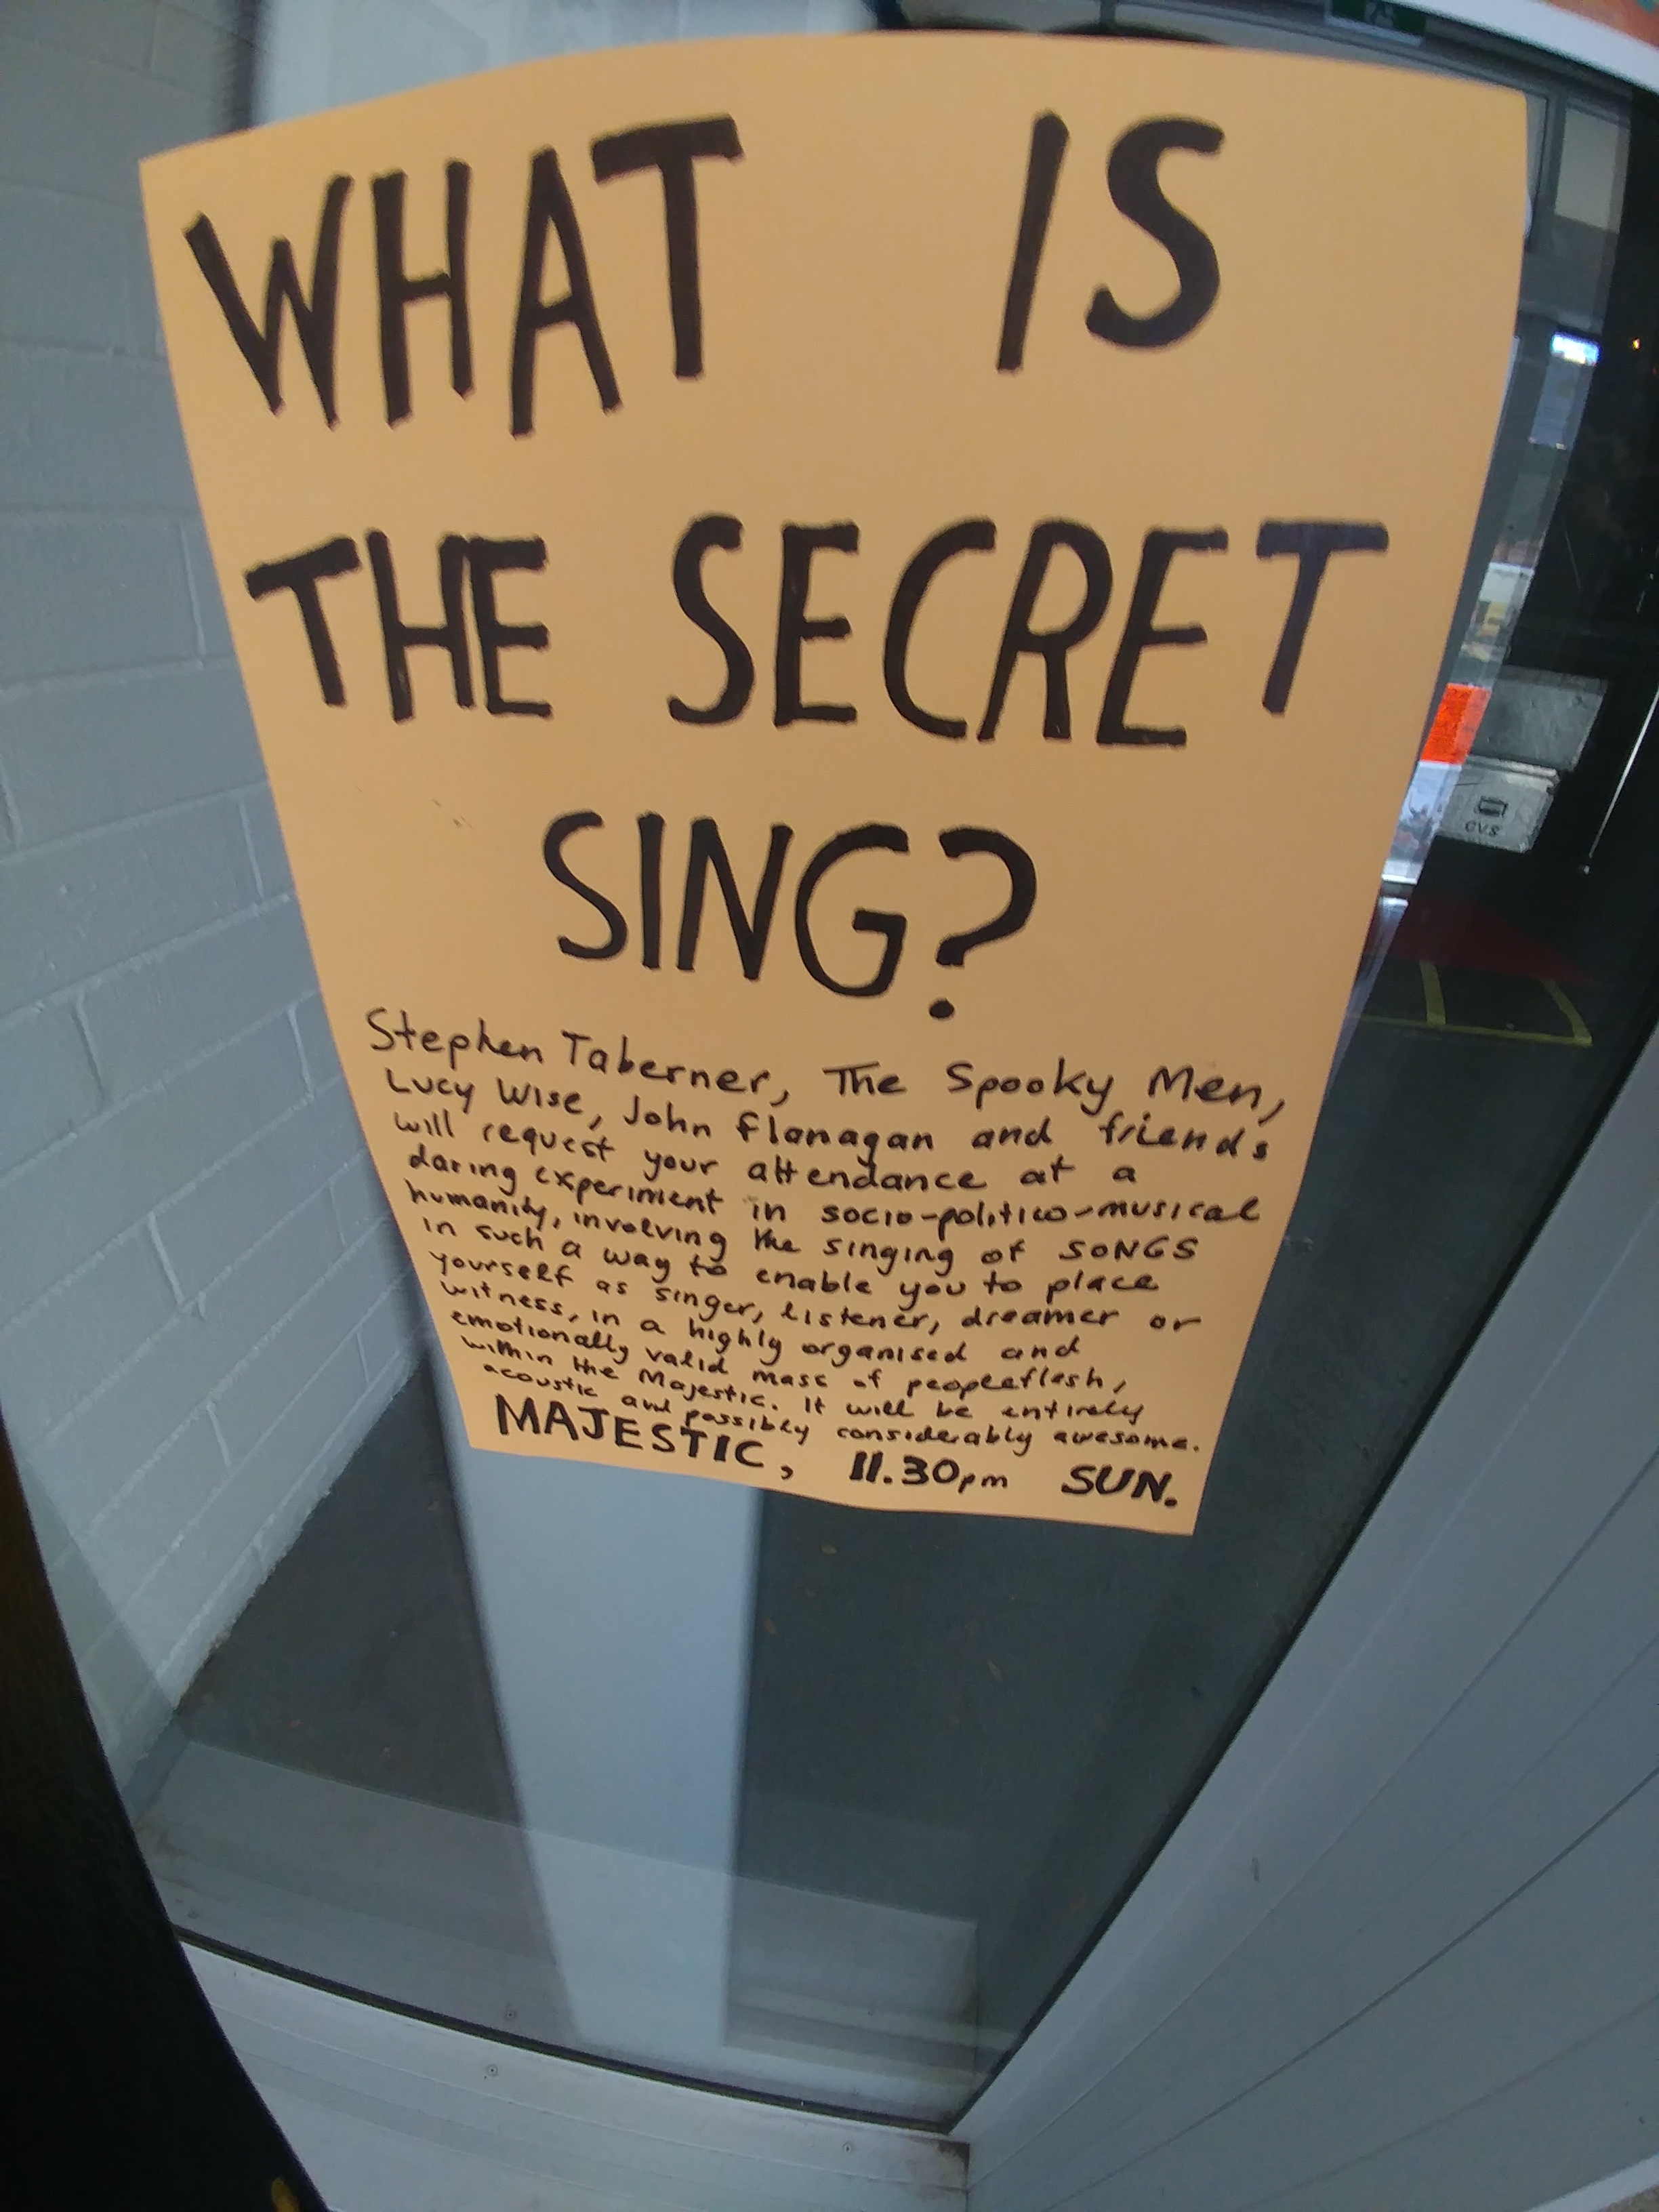 WHAT IS
THE SECRET
SING?
Stephen Taberner, The Spooky Men,
Lucy Wise, John Flanagan and friends
will request your attendance at a
daring experiment in socio-politico-musical
humanity, involving the singing of SONGS
in such a way to enable you to place
yourself as singer, listener, dreamer or
witness, in a highly organised and
emotionally valid mass of peopleflesh,
within the Majestic. It will be entirely
acoustic and possibly considerably awesome.
MAJESTIC, 11.30pm SUN.